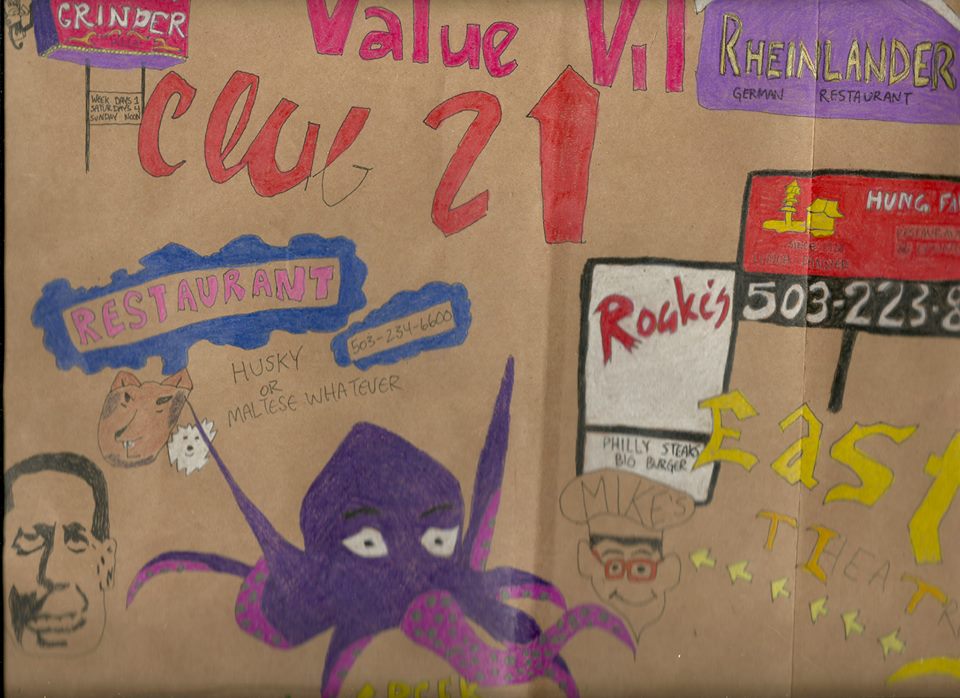 GRINDER
WEEK DAYS 1
SATURDAYS 4
SUNDAY NOON
Value Vil
RHEINLANDER
GERMAN RESTAURANT
Club 21
HUNG FA
503-223-8
RESTAURANT
503-234-6600
HUSKY
OR
MALTESE WHATEVER
PHILLY STEAKS
BIG BURGER
MIKES
East
THEATR
GREEK